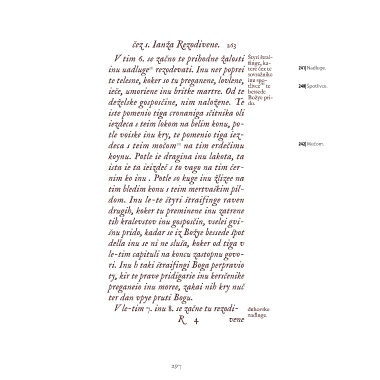 čez 1. Ianža Rezodivene. 263
V tim 6. se začno te prihodne žalosti
inu uadluge rezodevati. Inu ner poprei
te telesne, koker so tu preganene, lovlene,
ieče, umoriene inu britke martre. Od te
deželske gosposčine, nim naložene. Te
iste pomenio tiga cronaniga sčitnika oli
iezdeca s teim lokom na belim konu, po-
tle voiske inu kry, te pomenio tiga iez-
deca s teim močom na tim erdečimu
koynu. Potle ie dragina inu lakota, ta
ista ie ta ieizdeč s to vago na tim čer-
nim ko inu . Potle so kuge inu žlizee na
tim bledim konu s teim mertvaškim pil-
dom. Inu le-te štyri štraifinge raven
drugih, koker tu preminene inu zatrene
tih kralevstov inu gosposčin, vselei gvi-
šnu prido, kadar se iz Božye bessede špot
della inu se ni ne sluša, koker od tiga v
le-tim capituli na koncu zastopnu govo-
ri. Inu h taki štraifingi Boga perpravio
ty, kir te prave pridigarie inu kersčenike
preganeio inu more, zakai nih kry nuč
ter dan vpye pruti Bogu.
V le-tim 7. inu 8. se začne tu rezodi-
R 4 vene
Štyri štrai-
finge, ka-
tere čez te
sovražnike
inu špo-
tlivce te
bessede
Božye pri-
do.
duhovske
nadluge.
241| Nadluge.
242| Mečom.
297